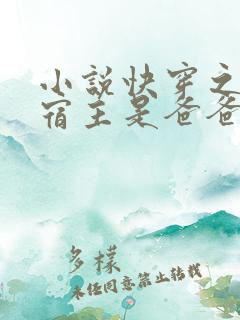 小说快穿之
宿主是爸爸
多样
未经同意禁止转载